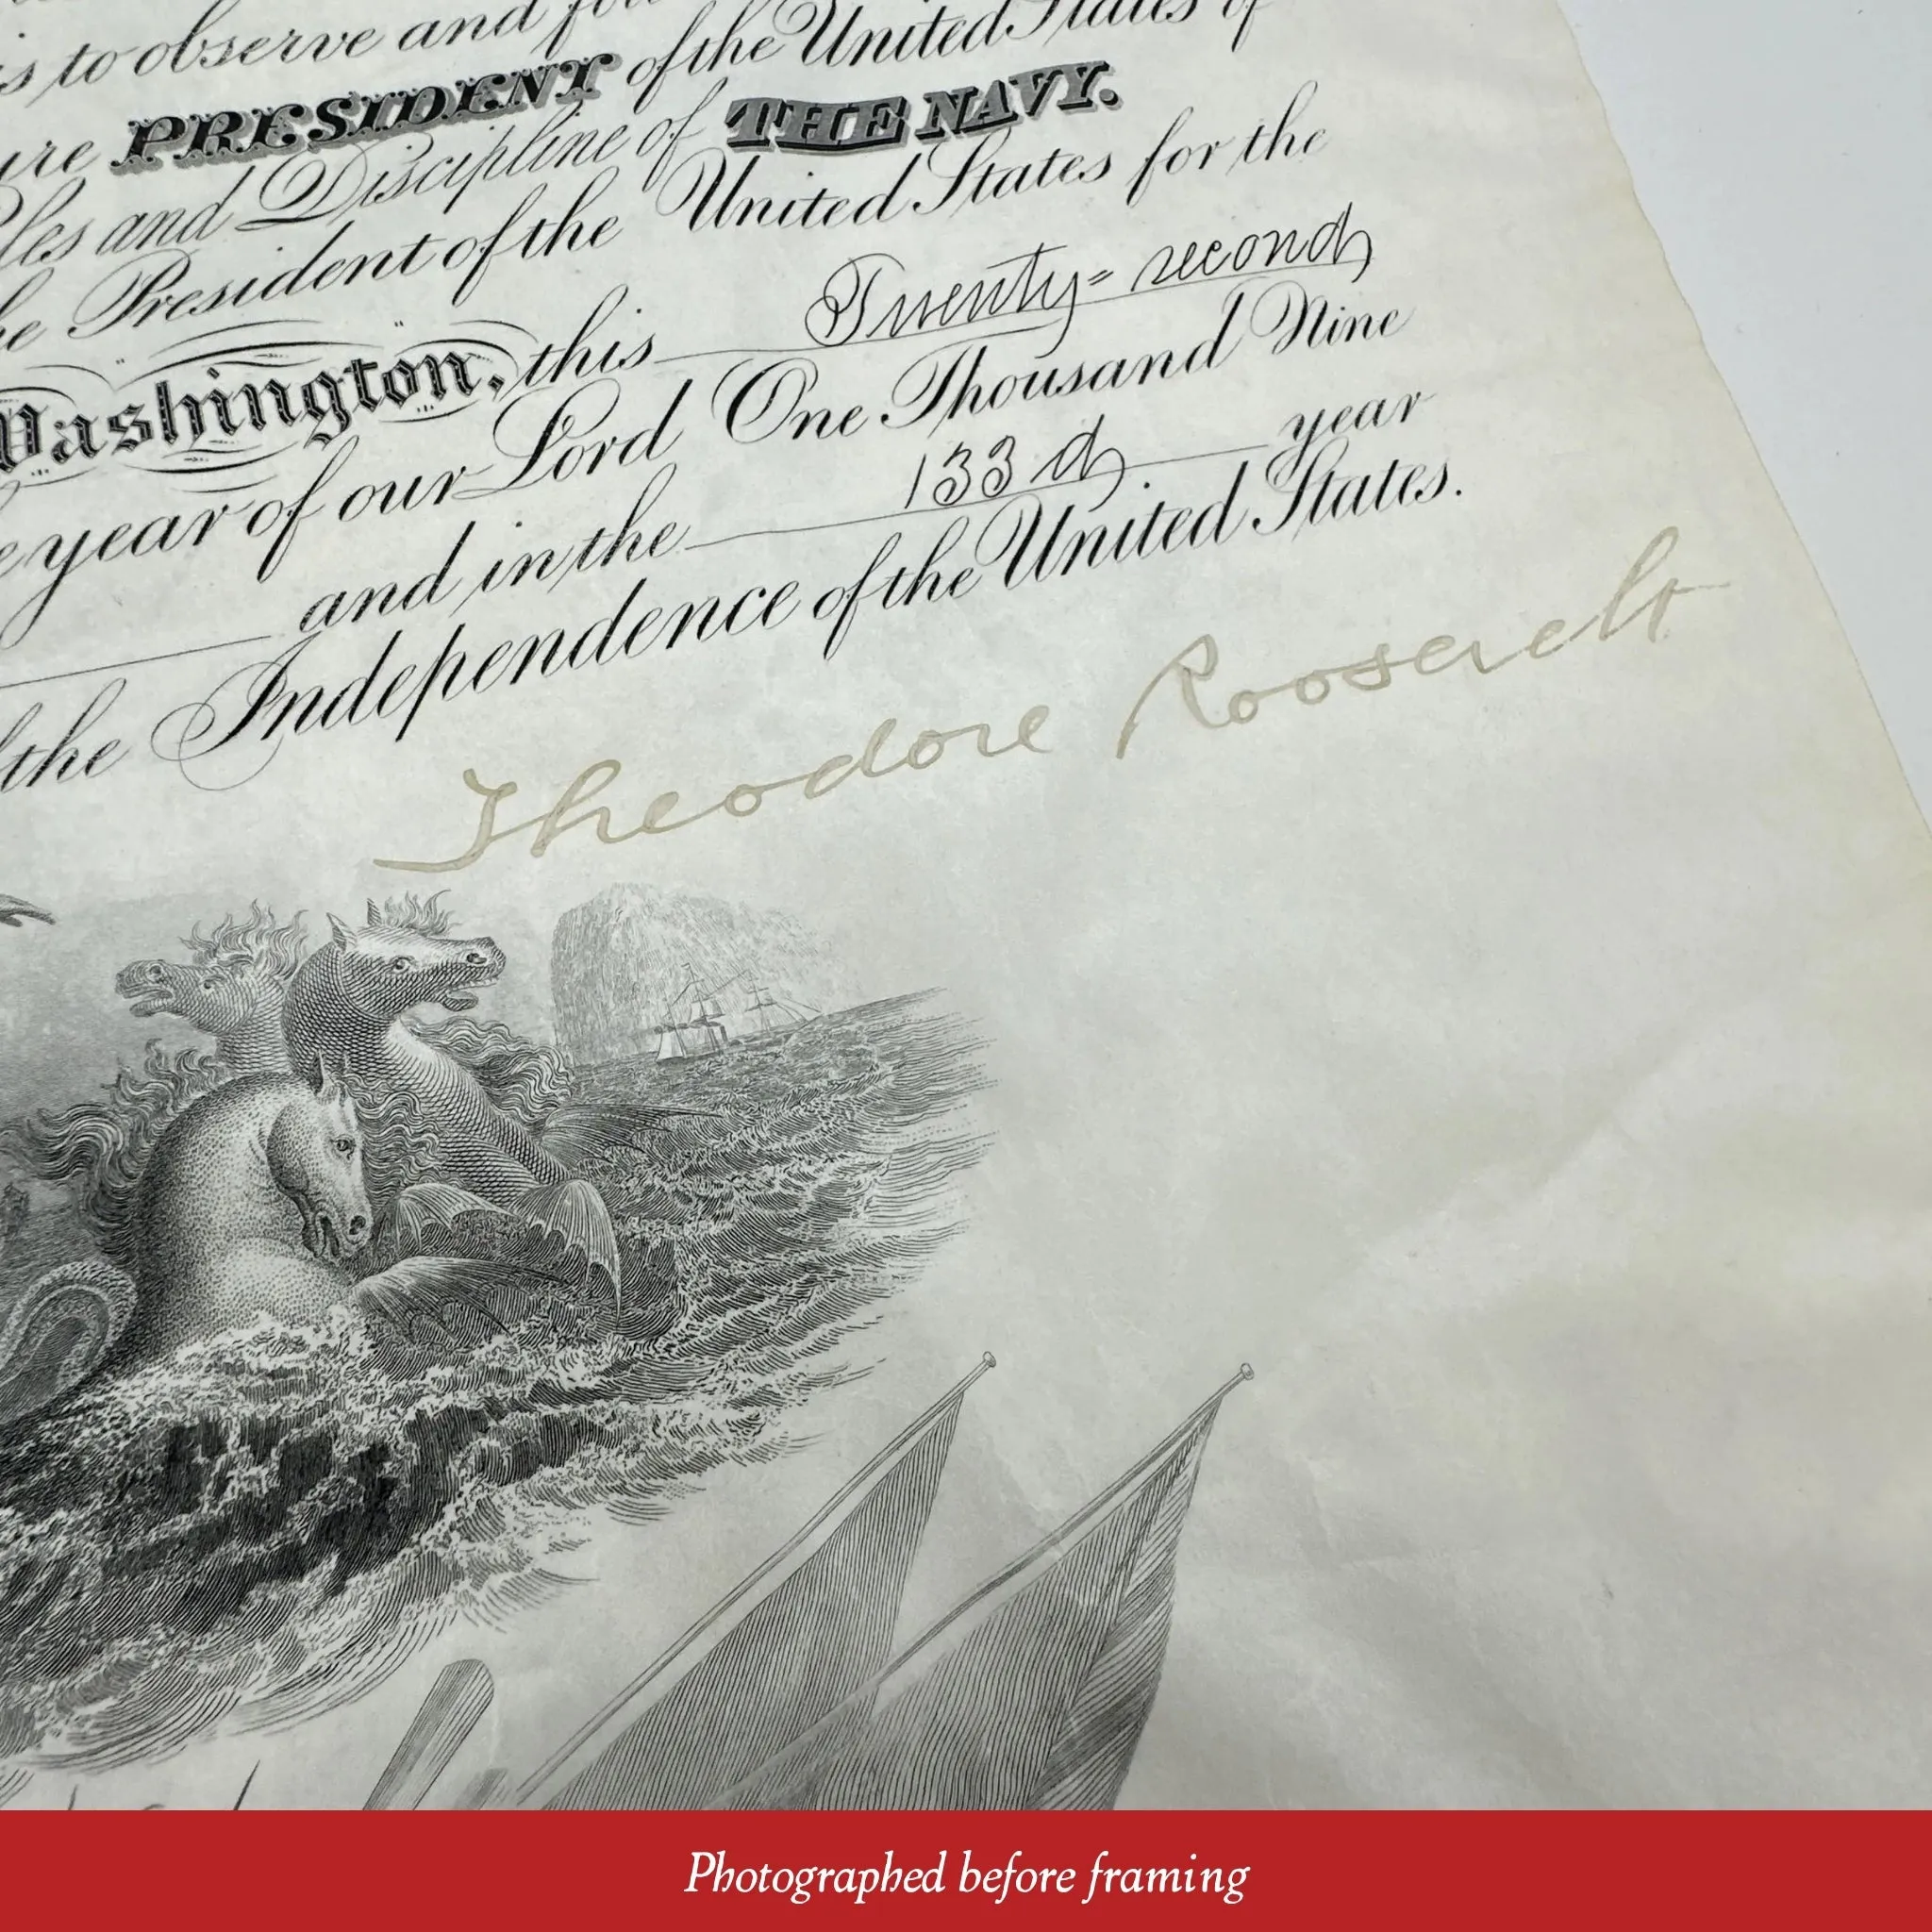 is to observe and
PRESIDENT of the United States of
and Discipline of THE NAVY.
President of the United States for the
Washington, this Twenty=second
year of our Lord One Thousand Nine
and in the 133d year
the Independence of the United States.
Theodore Roosevelt
Photographed before framing